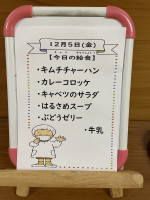 12月5日(金)
【今日の給食】
・キムチチャーハン
・カレーコロッケ
・キャベツのサラダ
・はるさめスープ
・ぶどうゼリー
・牛乳